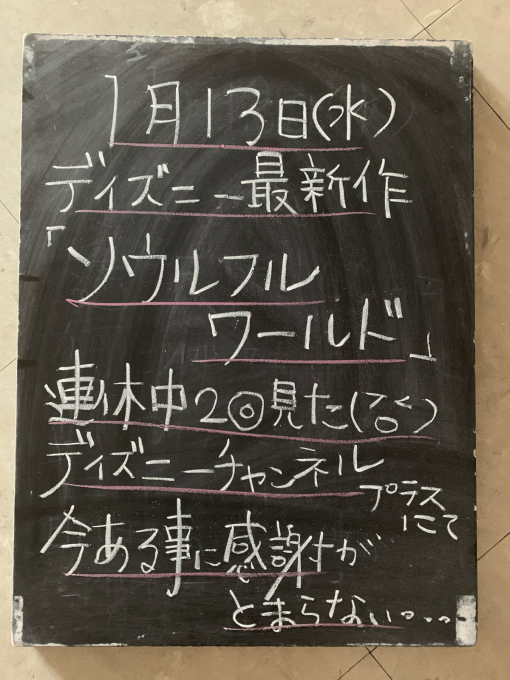 1月13日(水)
ディズニー最新作
「ソウルフル
ワールド」
連休中2回見た(>o<)
ディズニーチャンネル
プラスにて
今ある事に感謝が
とまらない。。。